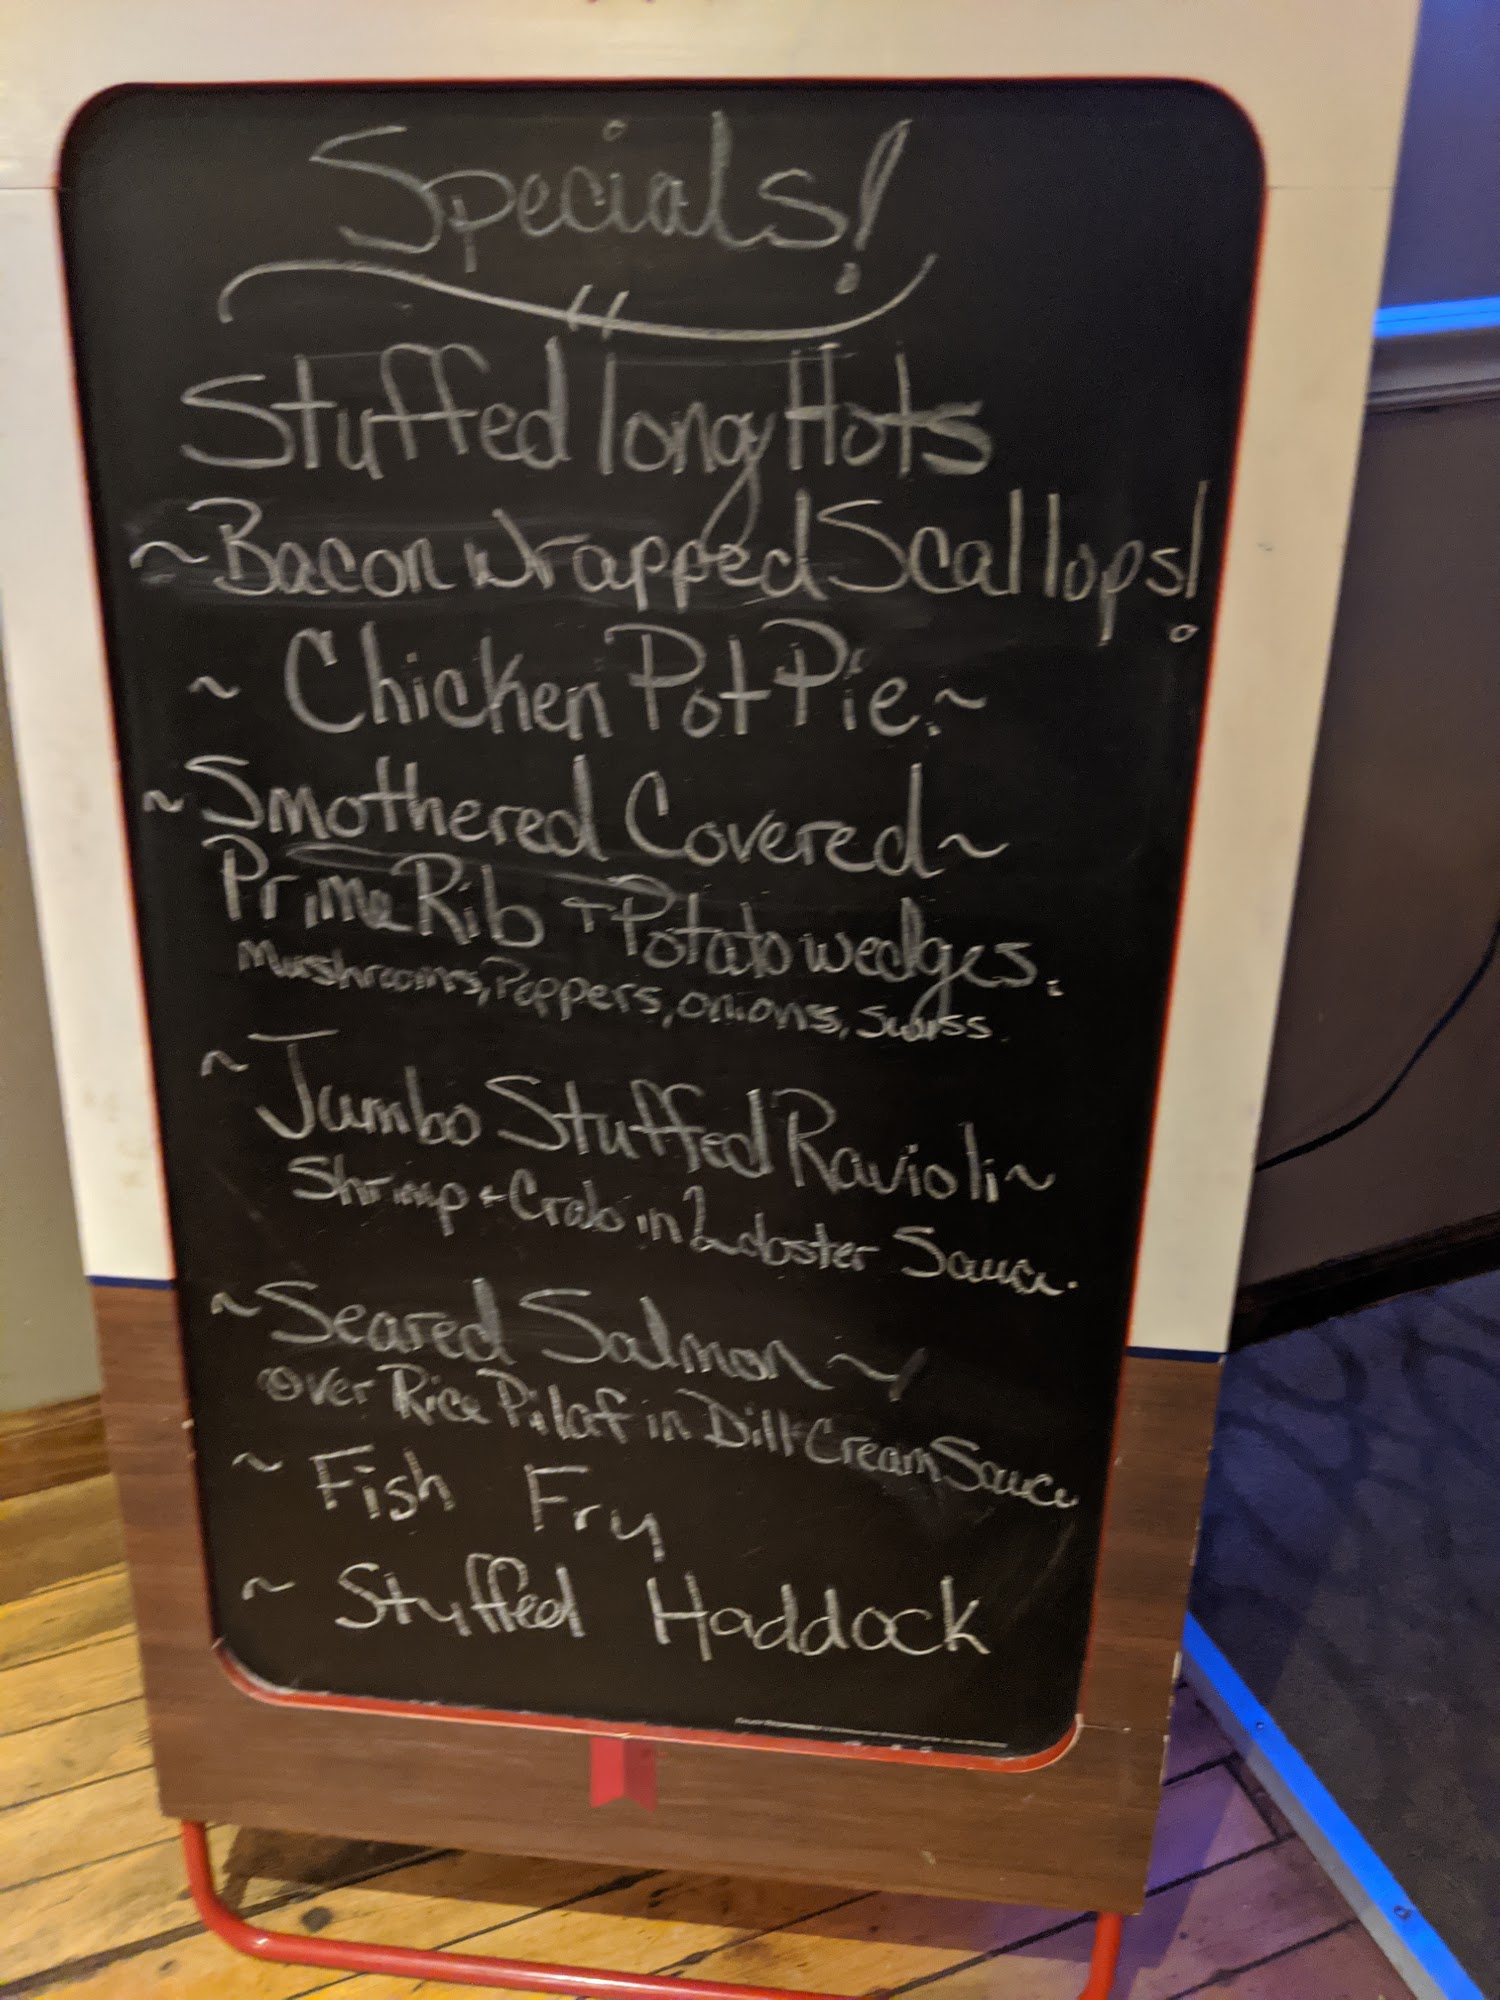 Specials!
Stuffed long Hots
~ Bacon wrapped Scallops!
~ Chicken Pot Pie. ~
~ Smothered Covered ~
Prime Rib + Potato wedges.
Mushrooms, Peppers, onions, Swiss.
~ Jumbo Stuffed Ravioli ~
Shrimp + Crab in Lobster Sauce.
~ Seared Salmon ~
over Rice Pilaf in Dill Cream Sauce
~ Fish Fry
~ Stuffed Haddock